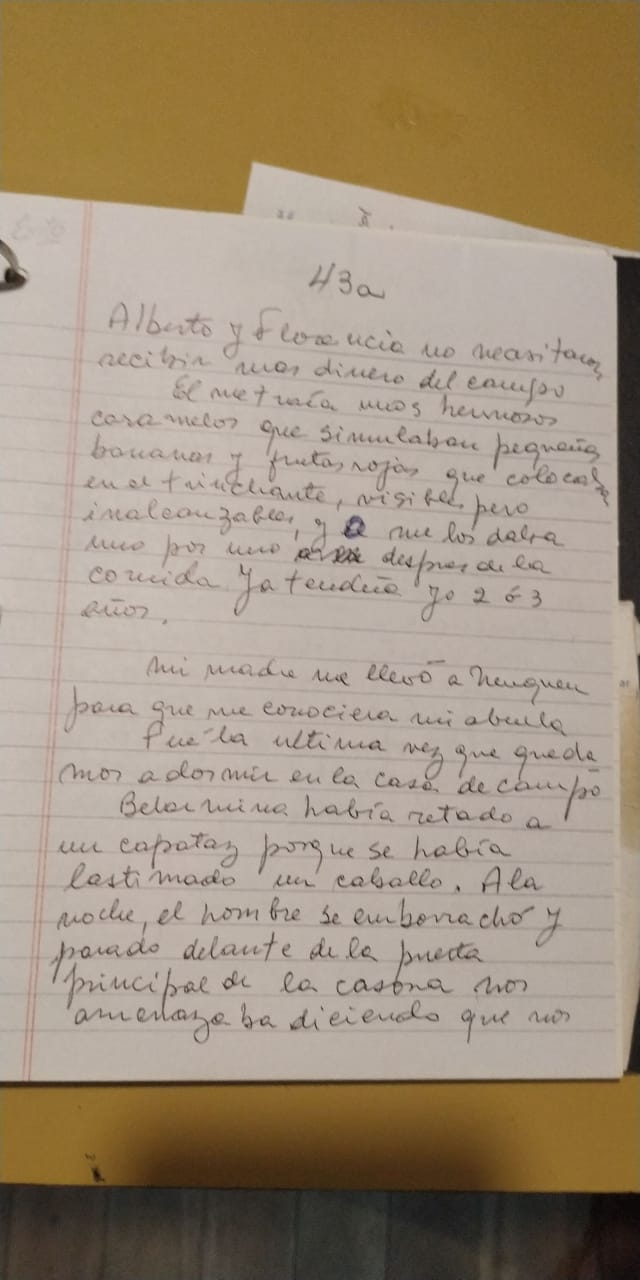 43a
Alberto y Florencia no necesitaron
recibir mas dinero del campo
El me traía unos hermosos
caramelos que simulaban pequeñas
bananas y frutas rojas que colocaba
en el trinchante, visibles pero
inalcanzables, y me los daba
uno por uno despues de la
comida Ya tendria yo 2 ó 3
años.
Mi madre me llevó a Neuquen
para que me conociera mi abuela
Fue la ultima vez que queda
mos a dormir en la casa de campo
Belarmina había retado a
un capataz porque se había
lastimado un caballo. A la
noche, el hombre se emborrachó y
parado delante de la puerta
principal de la casona nos
amenazaba diciendo que nos